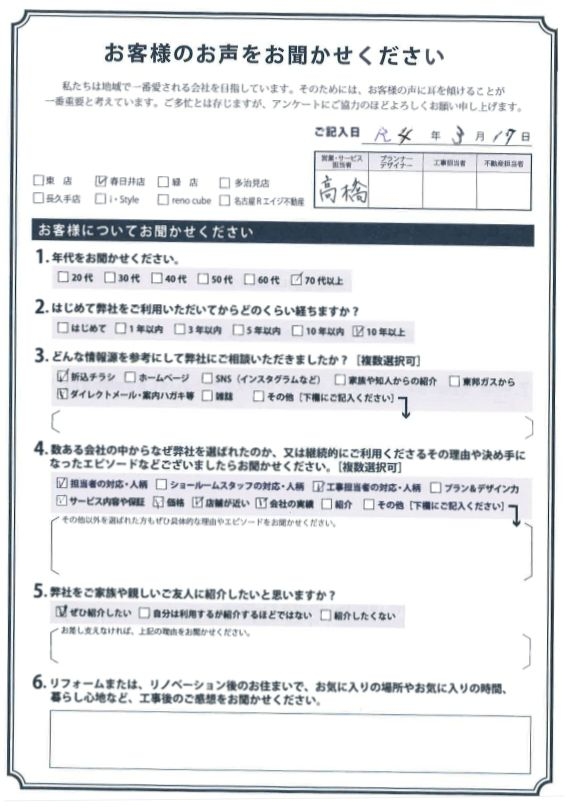 お客様のお声をお聞かせください
私たちは地域で一番愛される会社を目指しています。そのためには、お客様の声に耳を傾けることが
一番重要と考えています。ご多忙とは存じますが、アンケートにご協力のほどよろしくお願い申し上げます。
ご記入日 R4 年 3 月 17 日
営業・サービス担当者 プランナーデザイナー 工事担当者 不動産担当者
高橋
□東 店 ☑春日井店 □緑 店 □多治見店
□長久手店 □i・Style □reno cube □名古屋Rエイジ不動産
お客様についてお聞かせください
1. 年代をお聞かせください。
□20代 □30代 □40代 □50代 □60代 ☑70代以上
2. はじめて弊社をご利用いただいてからどのくらい経ちますか？
□はじめて □1年以内 □3年以内 □5年以内 □10年以内 ☑10年以上
3. どんな情報源を参考にして弊社にご相談いただきましたか？［複数選択可］
☑折込チラシ □ホームページ □SNS（インスタグラムなど） □家族や知人からの紹介 □東邦ガスから
☑ダイレクトメール・案内ハガキ等 □雑誌 □その他［下欄にご記入ください］
4. 数ある会社の中からなぜ弊社を選ばれたのか、又は継続的にご利用くださるその理由や決め手に
なったエピソードなどございましたらお聞かせください。［複数選択可］
☑担当者の対応・人柄 □ショールームスタッフの対応・人柄 ☑工事担当者の対応・人柄 □プラン＆デザイン力
☑サービス内容や保証 ☑価格 ☑店舗が近い ☑会社の実績 □紹介 □その他［下欄にご記入ください］
その他以外を選ばれた方もぜひ具体的な理由やエピソードをお聞かせください。
5. 弊社をご家族や親しいご友人に紹介したいと思いますか？
☑ぜひ紹介したい □自分は利用するが紹介するほどではない □紹介したくない
お差し支えなければ、上記の理由をお聞かせください。
6. リフォームまたは、リノベーション後のお住まいで、お気に入りの場所やお気に入りの時間、
暮らし心地など、工事後のご感想をお聞かせください。